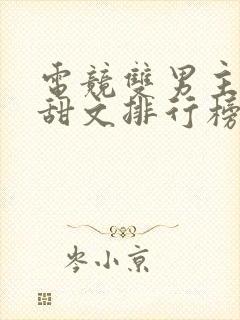 電競雙男主
甜文排行榜
岑小京